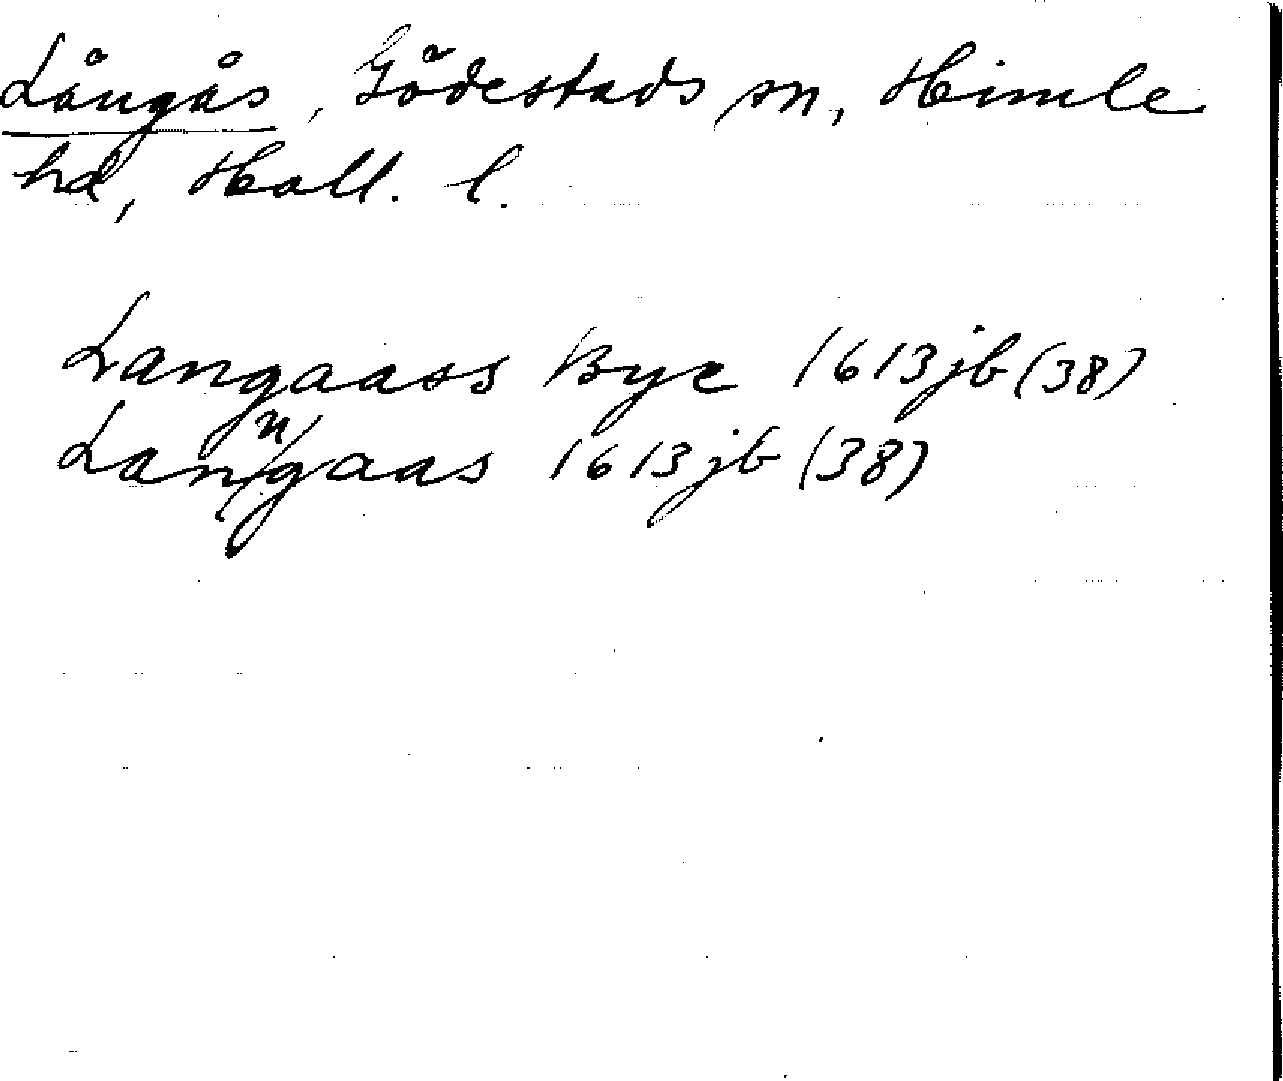 Långås, Gödestads sn, Himle
hd, Hall. l.
Langaass Bye 1613 jb (38)
Langaas 1613 jb (38)